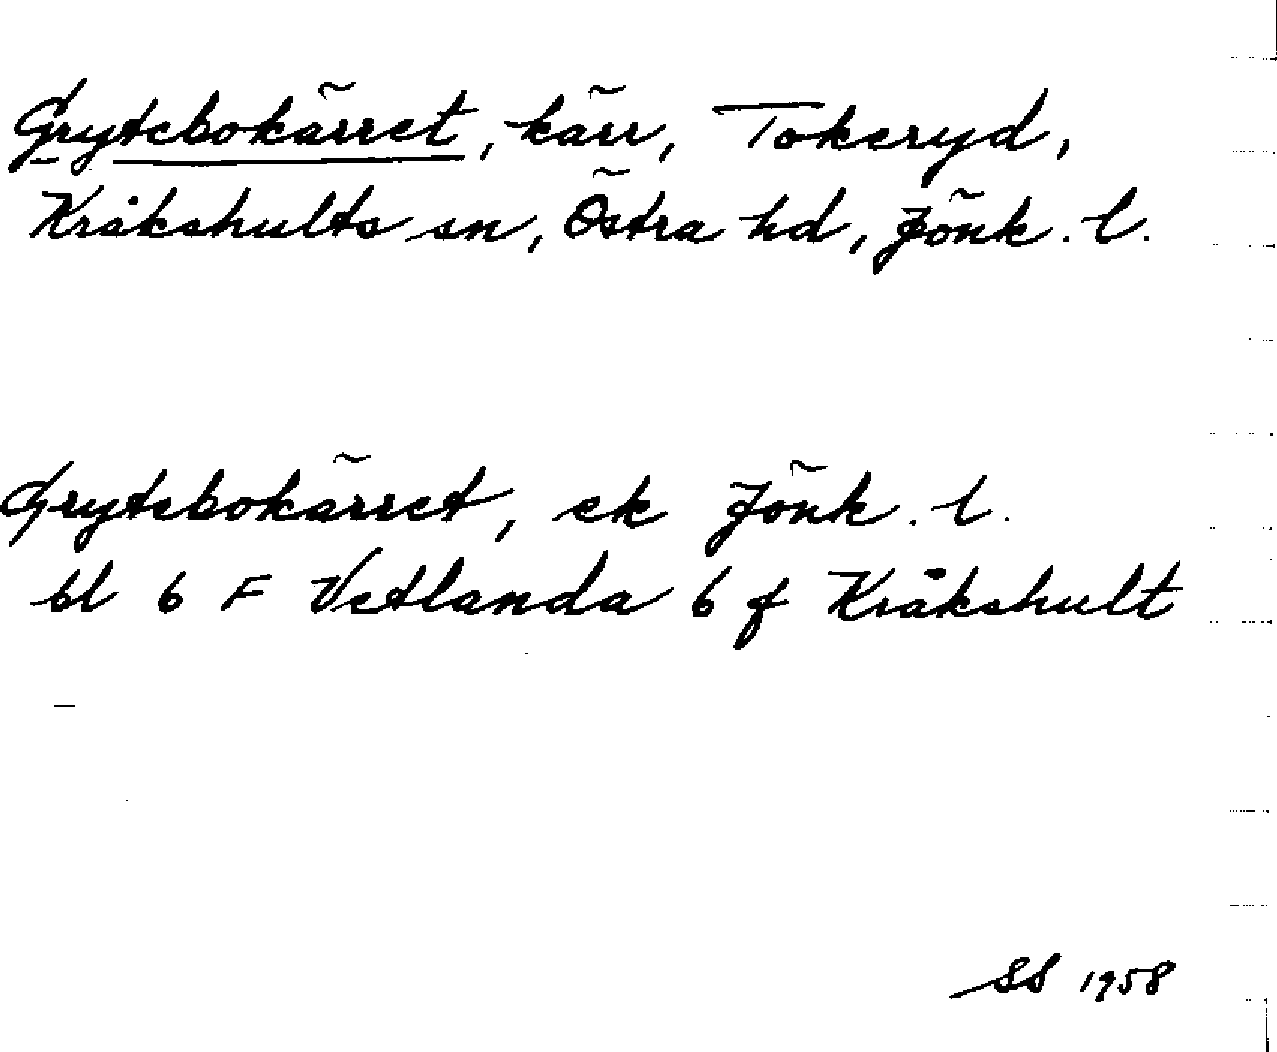 Grytebokärret, kärr, Tokeryd,
Kråkshults sn, Östra hd, Jönk. l.
Grytebokärret, ek Jönk. l.
bl 6 F Vetlanda 6 f Kråkshult
SS 1958